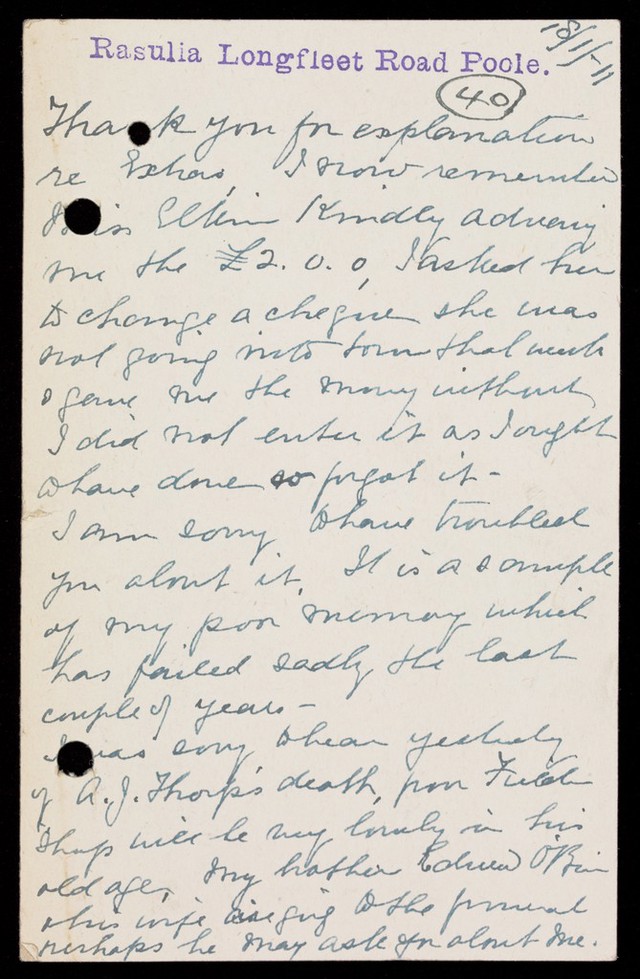 Rasulia Longfleet Road Poole.
18/1/-11
40
Thank you for explanation
re Extras, I now remember
Miss Elkin Kindly advancing
me the £2.0.0, I asked her
to change a cheque she was
not going into town that week
& gave me the money without
I did not enter it as I ought
to have done so forgot it -
I am sorry to have troubled
you about it, It is a sample
of my poor memory which
has failed sadly the last
couple of years -
I was sorry to hear yesterday
of A.J. Thorp's death, poor
Thorp will be very lonely in his
old age, My brother Edwin
& his wife going to the funeral
perhaps he may ask you about me.